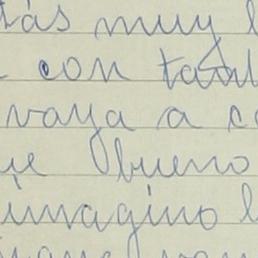 tás muy l
con tant
vaya a c
ue bueno
imagino l